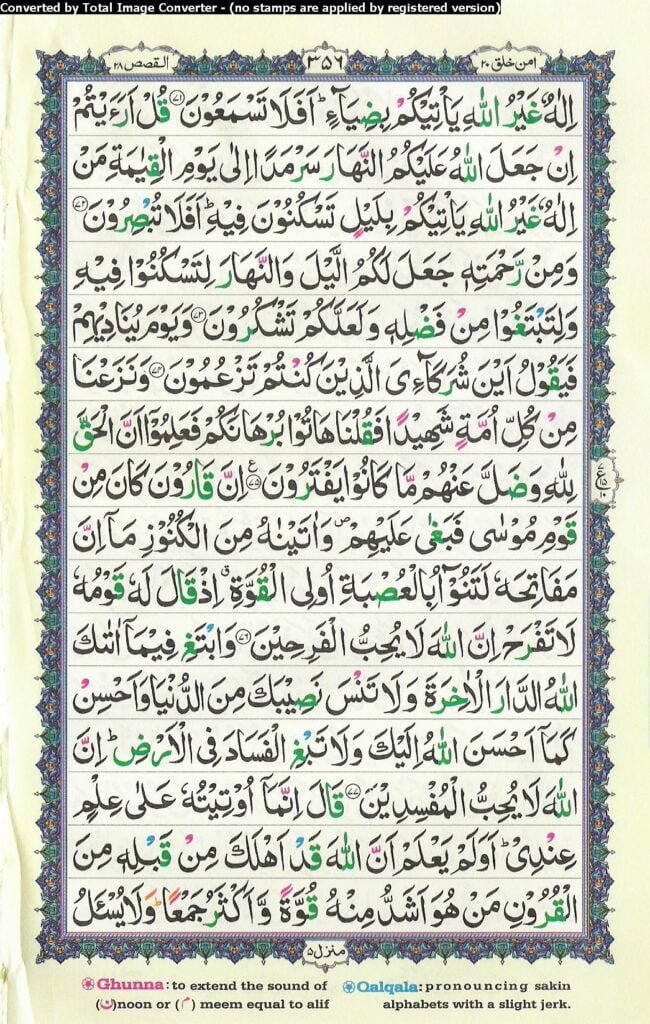 Converted by Total Image Converter - (no stamps are applied by registered version)
امن خلق ٢٠ ٣٥٦ القصص ٢٨
اِلٰهٌ غَيْرُ اللّٰهِ يَاْتِيْكُمْ بِضِيَآءٍ ؕ اَفَلَا تَسْمَعُوْنَ ﴿٧١﴾ قُلْ اَرَءَيْتُمْ
اِنْ جَعَلَ اللّٰهُ عَلَيْكُمُ النَّهَارَ سَرْمَدًا اِلٰى يَوْمِ الْقِيٰمَةِ مَنْ
اِلٰهٌ غَيْرُ اللّٰهِ يَاْتِيْكُمْ بِلَيْلٍ تَسْكُنُوْنَ فِيْهِ ؕ اَفَلَا تُبْصِرُوْنَ ﴿٧٢﴾
وَمِنْ رَّحْمَتِهٖ جَعَلَ لَكُمُ الَّيْلَ وَالنَّهَارَ لِتَسْكُنُوْا فِيْهِ
وَلِتَبْتَغُوْا مِنْ فَضْلِهٖ وَلَعَلَّكُمْ تَشْكُرُوْنَ ﴿٧٣﴾ وَيَوْمَ يُنَادِيْهِمْ
فَيَقُوْلُ اَيْنَ شُرَكَآءِيَ الَّذِيْنَ كُنْتُمْ تَزْعُمُوْنَ ﴿٧٤﴾ وَنَزَعْنَا
مِنْ كُلِّ اُمَّةٍ شَهِيْدًا فَقُلْنَا هَاتُوْا بُرْهَانَكُمْ فَعَلِمُوْۤا اَنَّ الْحَقَّ
لِلّٰهِ وَضَلَّ عَنْهُمْ مَّا كَانُوْا يَفْتَرُوْنَ ﴿٧٥﴾ اِنَّ قَارُوْنَ كَانَ مِنْ
قَوْمِ مُوْسٰى فَبَغٰى عَلَيْهِمْ ۪ وَاٰتَيْنٰهُ مِنَ الْكُنُوْزِ مَاۤ اِنَّ
مَفَاتِحَهٗ لَتَنُوْٓاُ بِالْعُصْبَةِ اُولِى الْقُوَّةِ ۗ اِذْ قَالَ لَهٗ قَوْمُهٗ
لَا تَفْرَحْ اِنَّ اللّٰهَ لَا يُحِبُّ الْفَرِحِيْنَ ﴿٧٦﴾ وَابْتَغِ فِيْمَاۤ اٰتٰىكَ
اللّٰهُ الدَّارَ الْاٰخِرَةَ وَلَا تَنْسَ نَصِيْبَكَ مِنَ الدُّنْيَا وَاَحْسِنْ
كَمَاۤ اَحْسَنَ اللّٰهُ اِلَيْكَ وَلَا تَبْغِ الْفَسَادَ فِى الْاَرْضِ ؕ اِنَّ
اللّٰهَ لَا يُحِبُّ الْمُفْسِدِيْنَ ﴿٧٧﴾ قَالَ اِنَّمَاۤ اُوْتِيْتُهٗ عَلٰى عِلْمٍ
عِنْدِيْ ؕ اَوَلَمْ يَعْلَمْ اَنَّ اللّٰهَ قَدْ اَهْلَكَ مِنْ قَبْلِهٖ مِنَ
الْقُرُوْنِ مَنْ هُوَ اَشَدُّ مِنْهُ قُوَّةً وَّاَكْثَرُ جَمْعًا ؕ وَلَا يُسْـَٔلُ
منزل ٥
Ghunna: to extend the sound of (ن) noon or (م) meem equal to alif
Qalqala: pronouncing sakin alphabets with a slight jerk.